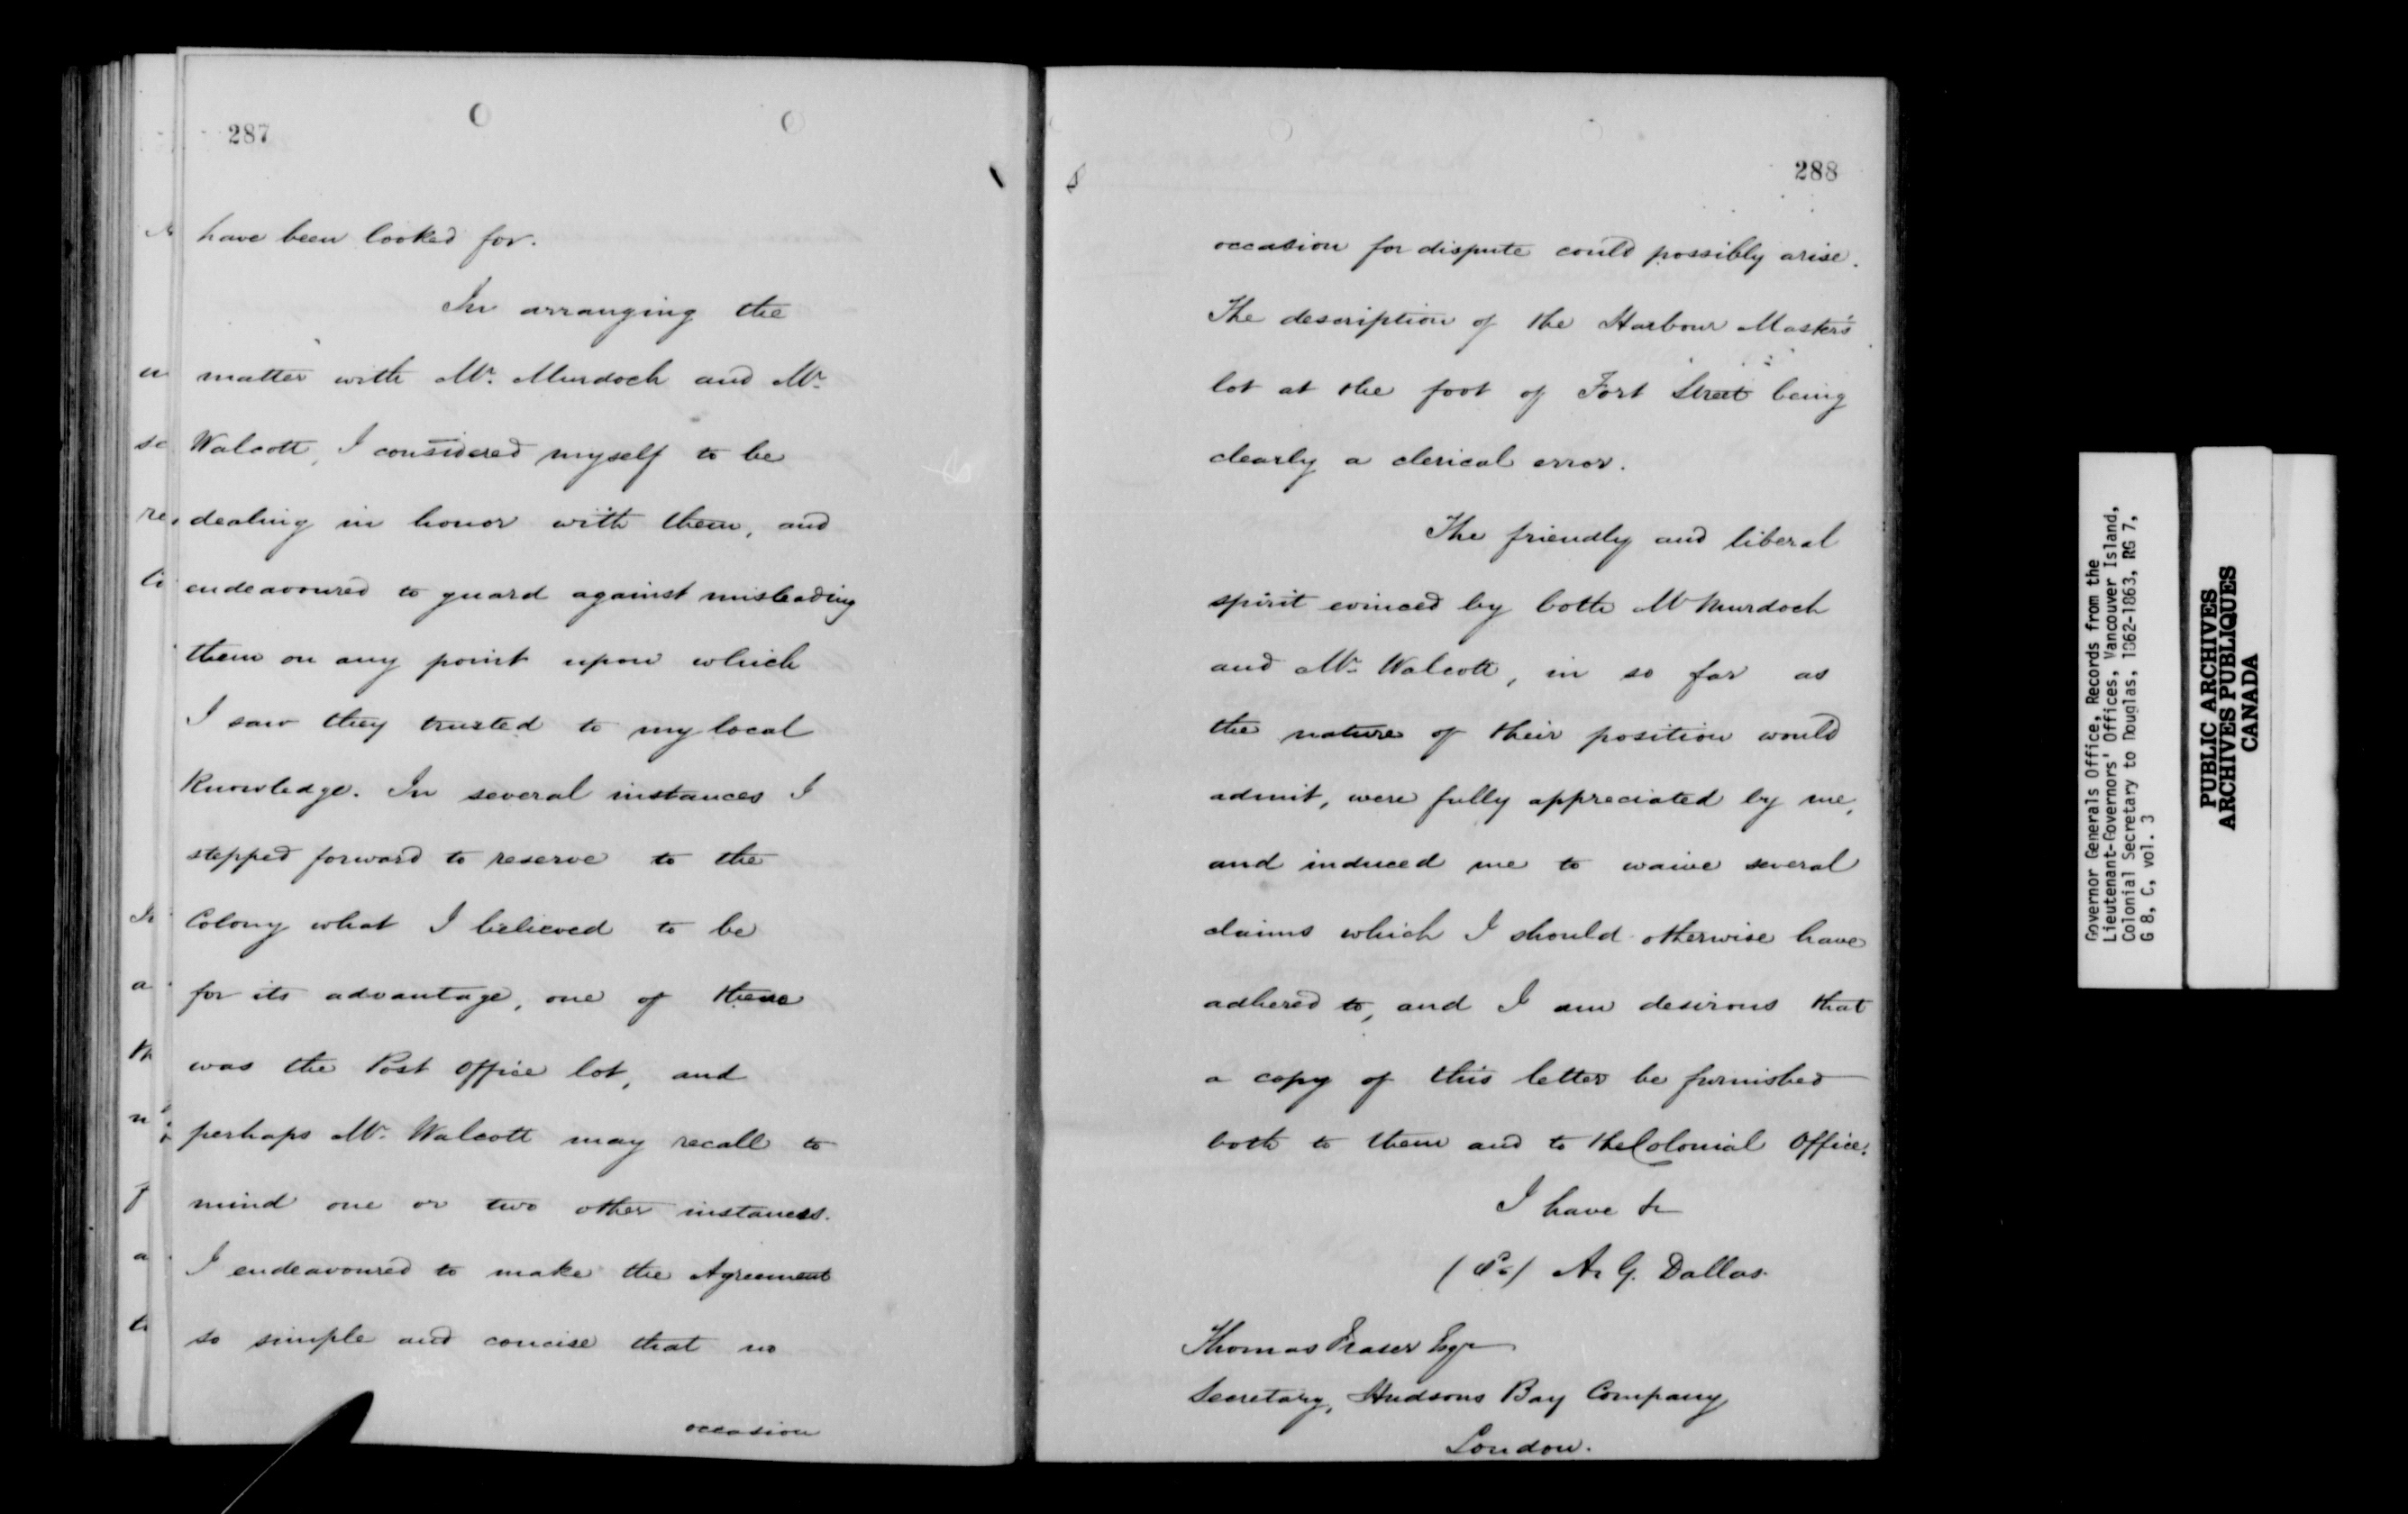 287
have been looked for.
In arranging the
matter with Mr. Murdoch and Mr.
Walcott, I considered myself to be
dealing in honor with them, and
endeavoured to guard against misleading
them on any point upon which
I saw they trusted to my local
knowledge. In several instances I
stepped forward to reserve to the
Colony what I believed to be
for its advantage, one of these
was the Post Office lot, and
perhaps Mr. Walcott may recall to
mind one or two other instances.
I endeavoured to make the Agreement
so simple and concise that no
occasion
288
occasion for dispute could possibly arise.
The description of the Harbour Master's
lot at the foot of Fort Street being
clearly a clerical error.
The friendly and liberal
spirit evinced by both Mr Murdoch
and Mr. Walcott, in so far as
the nature of their position would
admit, were fully appreciated by me,
and induced me to waive several
claims which I should otherwise have
adhered to, and I am desirous that
a copy of this letter be furnished
both to them and to the Colonial Office.
I have &c
A. G. Dallas.
Thomas Fraser Esqr
Secretary, Hudsons Bay Company
London.
Governor Generals Office, Records from the
Lieutenant-Governors' Offices, Vancouver Island,
Colonial Secretary to Douglas, 1862-1863, RG 7,
G 8, C, vol. 3
PUBLIC ARCHIVES
ARCHIVES PUBLIQUES
CANADA